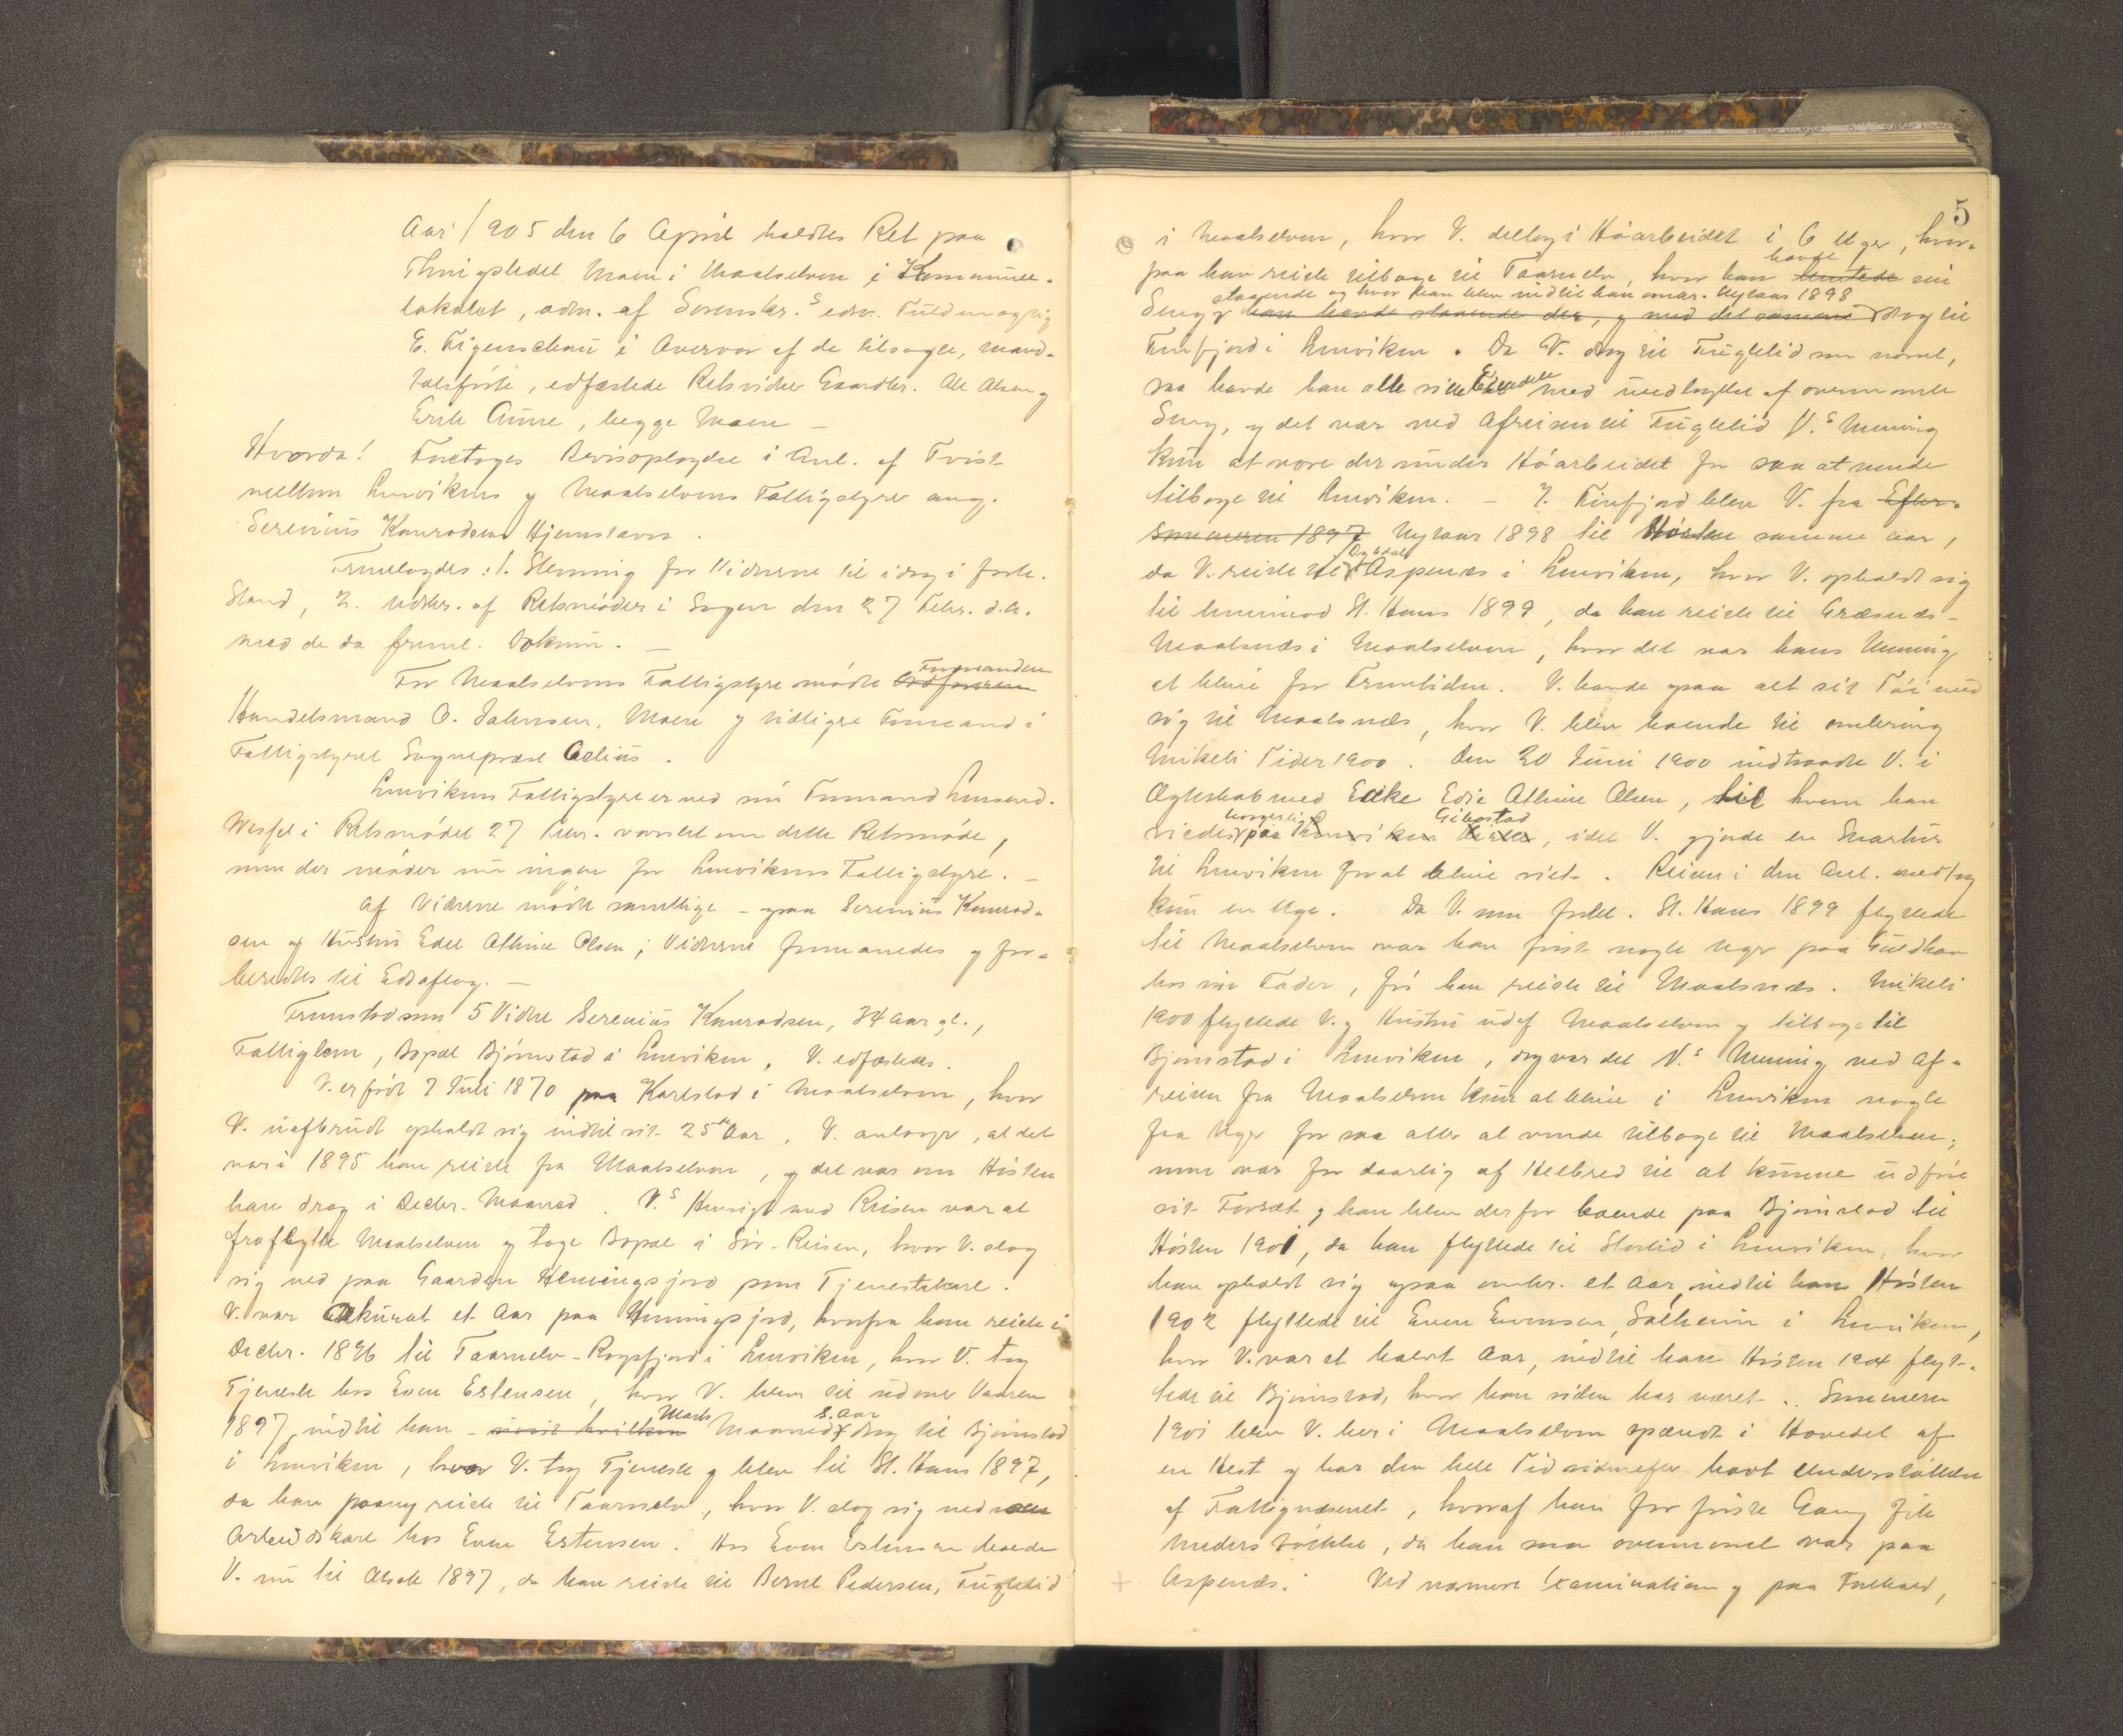 Aar 1905 den 6 April holdtes Ret paa
Thingstedet Moen i Maalselven i Kommune-
lokalet, adm. af Sorenskr.s edsv. Fuldmægtig
E. Figenschau i Overvær af de tilsagte, mand-
talsførte, edfæstede Retsvidner Gaardbr. Ole Olsen og
Erik Aune, begge Moen –
Hvorda! Foretoges Bevisoptagelse i Anl. af Tvist
mellem Lenvikens og Maalselvens Fattigstyrer ang.
Serenius Konradsens Hjemstavn.
Fremlagdes: 1. Stevning for Vidnerne til idag i fork.
Stand, 2. Udskr. af Retsmøder i Sagen den 27 Febr. d.A.
med de da freml. Dokum. –
For Maalselvens Fattigstyre mødte Ordføreren Formanden
Handelsmand O. Johnsen, Moen og tidligere Formand i
Fattigstyret Sogneprest Oelius.
Lenvikens Fattigstyre er ved sin Formand Lensmd.
Wessel i Retsmødet 27 Febr. varslet om dette Retsmøde,
men der møder nu ingen for Lenvikens Fattigstyre. –
Af Vidnerne mødte samtlige – ogsaa Serenius Konrad-
sen og Hustru Edel Athine Olsen; Vidnerne formanedes og for-
beredtes til Edsaflæg. –
Fremstod som 5 Vidne Serenius Konradsen, 34 Aar gl.,
Fattiglem, Bopæl Bjørnstad i Lenviken. V. edfæstedes.
V. er født 7 Juli 1870 paa Karlstad i Maalselven, hvor
V. uafbrudt opholdt sig indtil sit 25de Aar. V. antager, at det
var i 1895 han reiste fra Maalselven, og det var om Høsten
han drog i Decbr. Maaned. V.s Hensigt med Reisen var at
fraflytte Maalselven og tage Bopæl i Sør-Reisen, hvor V. slog
sig ned paa Gaarden Henningsjord som Tjenestekarl.
V. var akkurat et Aar paa Henningsjord, hvorfra han reiste i
Decbr. 1896 til Taarnelv-Rossfjord i Lenviken, hvor V. tog
Tjeneste hos Even Estensen, hvor V. blev til udover Vaaren
1897, indtil han – Marts Maaned s. Aar drog til Bjørnstad
i Lenviken, hvor V. tog Tjeneste og blev til St. Hans 1897,
da han paany reiste til Taarnelv, hvor V. slog sig ned som
Arbeidskarl hos Even Estensen. Hos Even Estensen boede
V. nu til Olsok 1897, da han reiste til Bernt Pedersen, Fuglelid
5
i Maalselven, hvor V. deltog i Høarbeidet i 6 Uger, hvor-
paa han reiste tilbage til Taarnelv, hvor han hentede havde sin
Seng staaende og hvor han blev indtil han omkr. Nytaar 1898
han havde staaende der, og med det samme drog til
Finfjord i Lenviken. Da V. drog til Fuglelid som nævnt,
saa havde han alle sine Eiendele med undtagelse af ovennævnte
Seng, og det var ved Afreisen til Fuglelid V.s Mening
kun at være der under Høarbeidet for saa at vende
tilbage til Lenviken. – I Finfjord blev V. fra Efter-
sommeren 1897 Nytaar 1898 til Høsten samme Aar,
da V. reiste til Aspenes i Lenviken, hvor V. opholdt sig
til henimod St. Hans 1899, da han reiste til Græsnes-
Maalsnes i Maalselven, hvor det var hans Mening
at blive for Fremtiden. V. havde ogsaa alt sit Tøi med
sig til Maalsnes, hvor V. blev boende til omkring
Mikeli Tider 1900. Den 20 Juni 1900 indtraadte V. i
Ægteskab med Enke Edle Athine Olsen, til hvem han
viedes borgerlig paa Lenviken Gibostad, idet V. gjorde en Snartur
til Lenviken for at blive viet. Reisen i den Anl. medtog
kun en Uge. Da V. som fortalt. St. Hans 1899 flyttede
til Maalselven var han først nogle Uger paa Guldhav
hos sin Fader, før han reiste til Maalsnes. Mikeli
1900 flyttede V. og Hustru ud af Maalselven og tilbage til
Bjørnstad i Lenviken, dog var det V.s Mening ved Af-
reisen fra Maalselven kun at blive i Lenviken nogle
faa Uger for saa atter at vende tilbage til Maalselven;
men var for daarlig af Helbred til at kunne udføre
sit Forsæt og han blev derfor boende paa Bjørnstad til
Høsten 1901, da han flyttede til Storlid i Lenviken, hvor
han opholdt sig ogsaa omkr. et Aar, indtil han Høsten
1902 flyttede til Even Evensen, Solheim i Lenviken,
hvor V. var et halvt Aar, indtil han Høsten 1904 flyt-
tede til Bjørnstad, hvor han siden har været. Sommeren
1901 blev V. her i Maalselven spændt i Hovedet af
en Hest og har den hele Tid siden efter havt Understøttelse
af Fattigvæsenet, hvoraf han for første Gang fik
Understøttelse, da han som ovennævnt var paa
Aspenes. Ved nærmere Examination og paa Forhold,